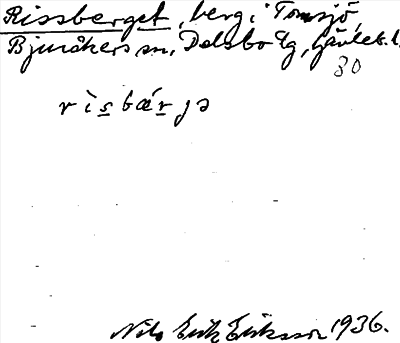 Rissberget, berg i Tomsjö,
Bjuråkers sn, Delsbo tg, Gävleb. l.
80
rìsbǽrjə
Nils Erik Eriksson 1936.